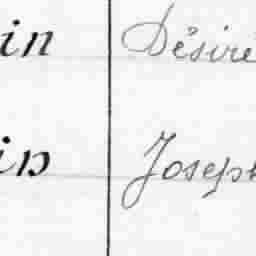 in Désiré
in Joseph